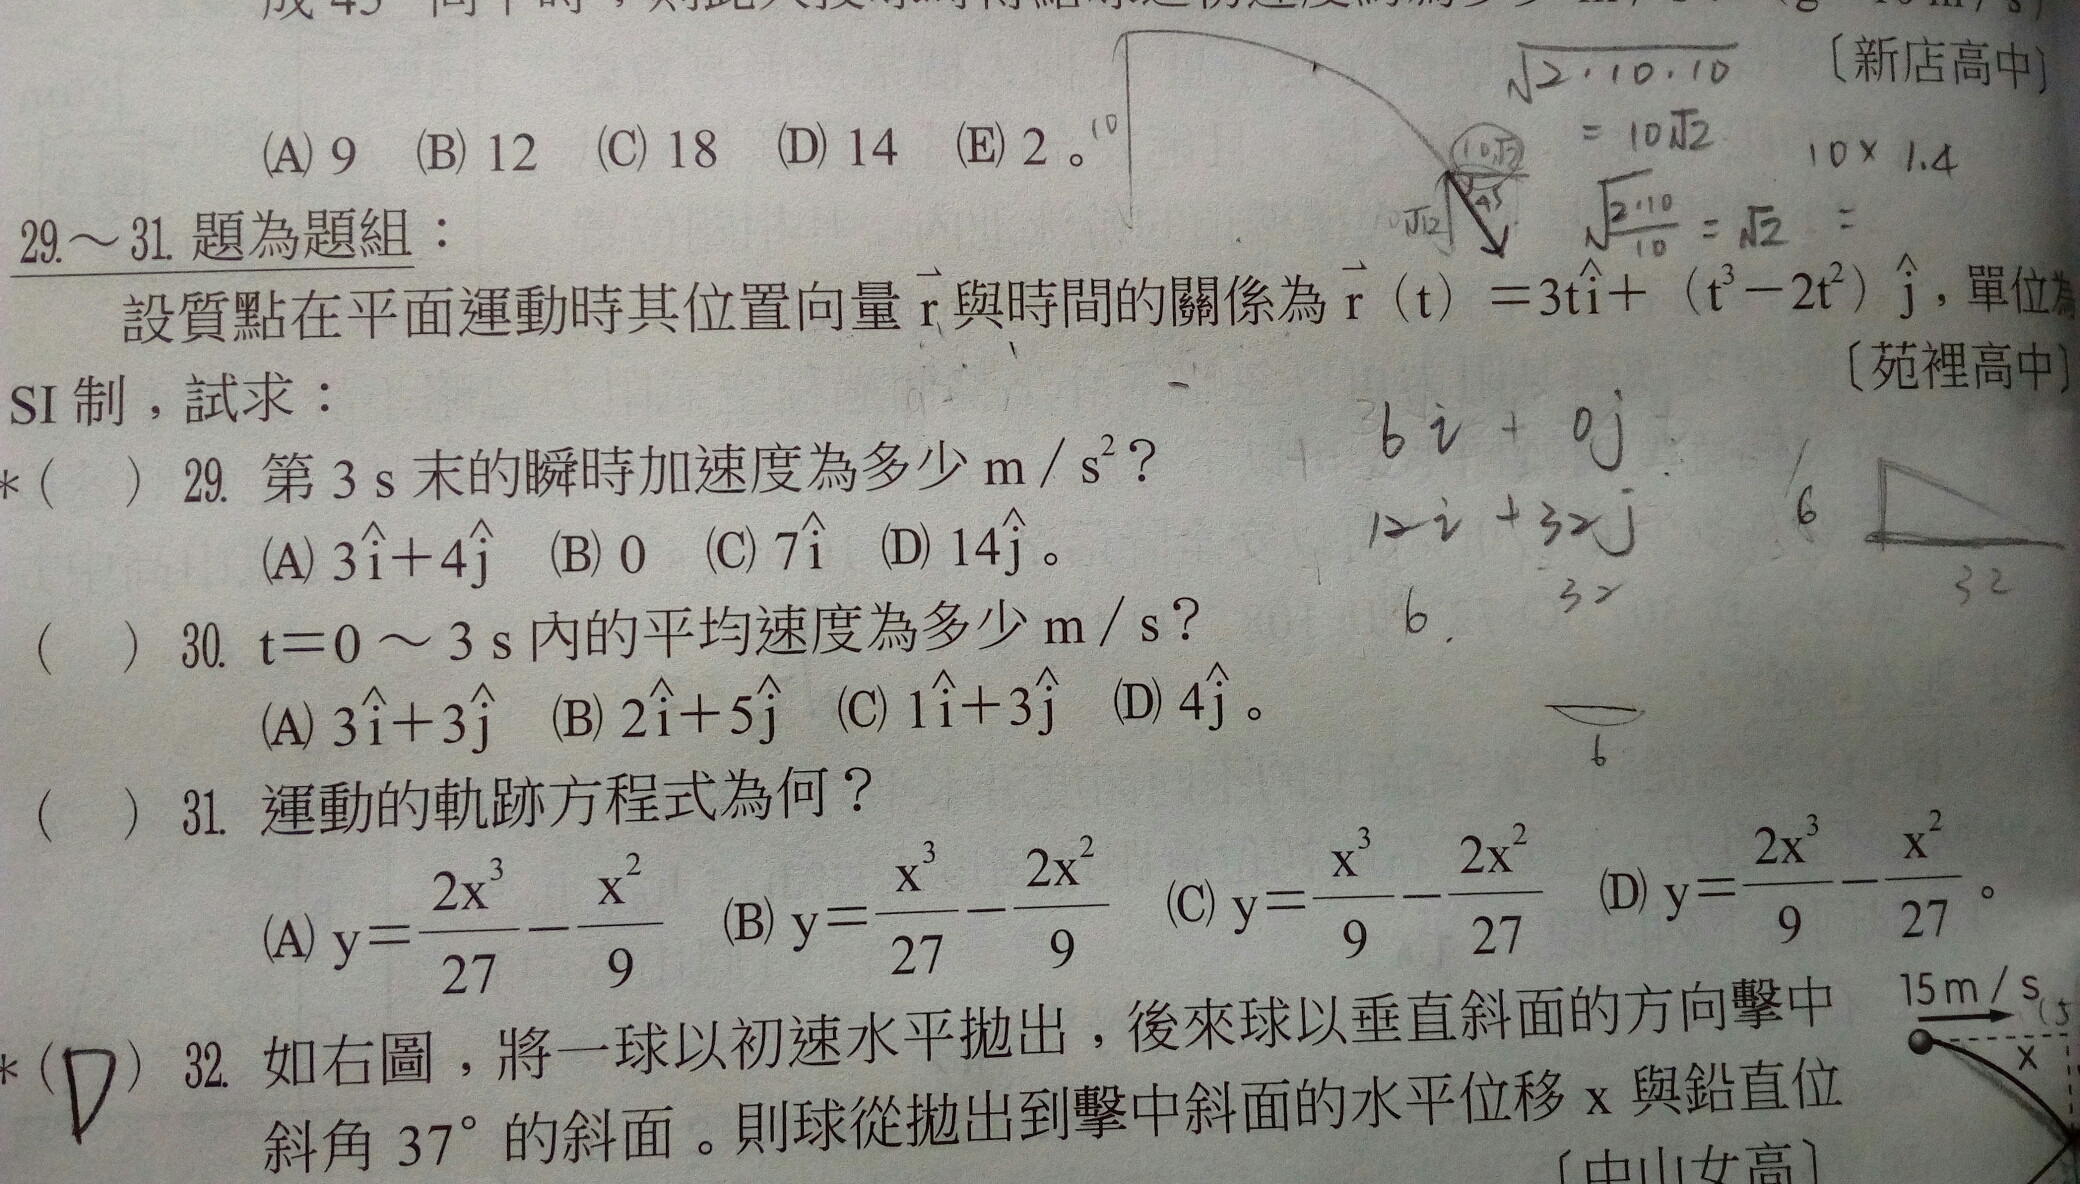 〔新店高中〕
(A) 9 (B) 12 (C) 18 (D) 14 (E) 2。
10
√2·10·10
= 10√2
10 × 1.4
10√2
45
√(2·10/10) = √2 =
29.～31. 題為題組：
設質點在平面運動時其位置向量 r⃗ 與時間的關係為 r⃗ (t) ＝3tî＋(t³－2t²) ĵ，單位為
〔苑裡高中〕
SI 制，試求：
6i + 0j
*( ) 29. 第 3 s 末的瞬時加速度為多少 m / s²？
12i + 32j
6
(A) 3î＋4ĵ (B) 0 (C) 7î (D) 14ĵ。
6. 32
32
( ) 30. t＝0～3 s 內的平均速度為多少 m / s？
(A) 3î＋3ĵ (B) 2î＋5ĵ (C) 1î＋3ĵ (D) 4ĵ。
6
( ) 31. 運動的軌跡方程式為何？
(A) y＝2x³/27－x²/9 (B) y＝x³/27－2x²/9 (C) y＝x³/9－2x²/27 (D) y＝2x³/9－x²/27。
15 m / s
x
*(D) 32. 如右圖，將一球以初速水平拋出，後來球以垂直斜面的方向擊中
斜角 37° 的斜面。則球從拋出到擊中斜面的水平位移 x 與鉛直位
〔中山女高〕